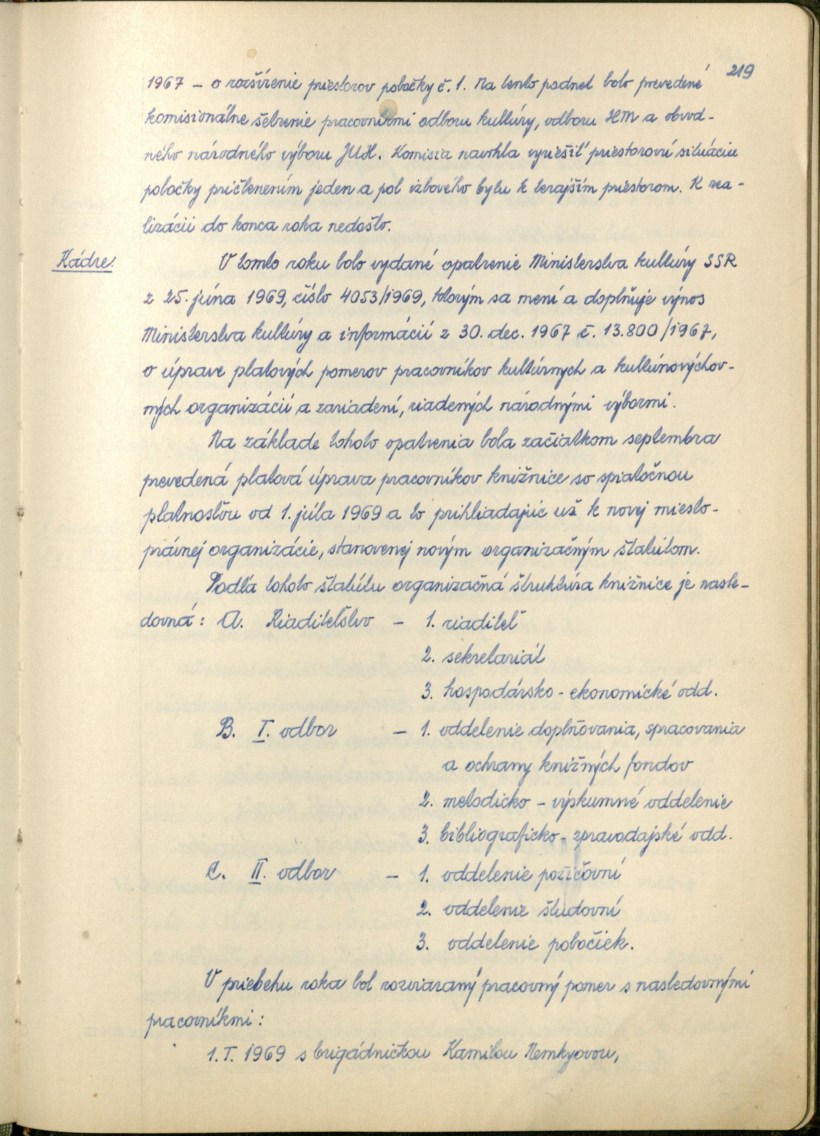 219
1967 – o rozšírenie priestorov pobočky č. 1. Na tento podnet bolo prevedené
komisionálne šetrenie pracovníkmi odboru kultúry, odboru HM a obvod-
ného národného výboru JUH. Komisia navrhla vyriešiť priestorovú situáciu
pobočky pričlenením jeden a pol izbového bytu k terajším priestorom. K rea-
lizácii do konca roka nedošlo.
Kádre.
V tomto roku bolo vydané opatrenie Ministerstva kultúry SSR
z 25. júna 1969, číslo 4053/1969, ktorým sa mení a doplňuje výnos
Ministerstva kultúry a informácií z 30. dec. 1967 č. 13.800/1967,
o úprave platových pomerov pracovníkov kultúrnych a kultúrnovýchov-
ných organizácií a zariadení, riadených národnými výbormi.
Na základe tohoto opatrenia bola začiatkom septembra
prevedená platová úprava pracovníkov knižnice so spiatočnou
platnosťou od 1. júla 1969 a to prihliadajúc už k novej miesto-
právnej organizácie, stanovenej novým organizačným štatútom.
Podľa tohoto štatútu organizačná štruktúra knižnice je nasle-
dovná: A. Riaditeľstvo – 1. riaditeľ
2. sekretariát
3. hospodársko-ekonomické odd.
B. I. odbor – 1. oddelenie doplňovania, spracovania
a ochrany knižných fondov
2. metodicko – výskumné oddelenie
3. bibliograficko-zpravodajské odd.
C. II. odbor – 1. oddelenie požičovní
2. oddelenie študovní
3. oddelenie pobočiek.
V priebehu roka bol rozviazaný pracovný pomer s nasledovnými
pracovníkmi:
1. I. 1969 s brigádničkou Kamilou Nemkyovou,